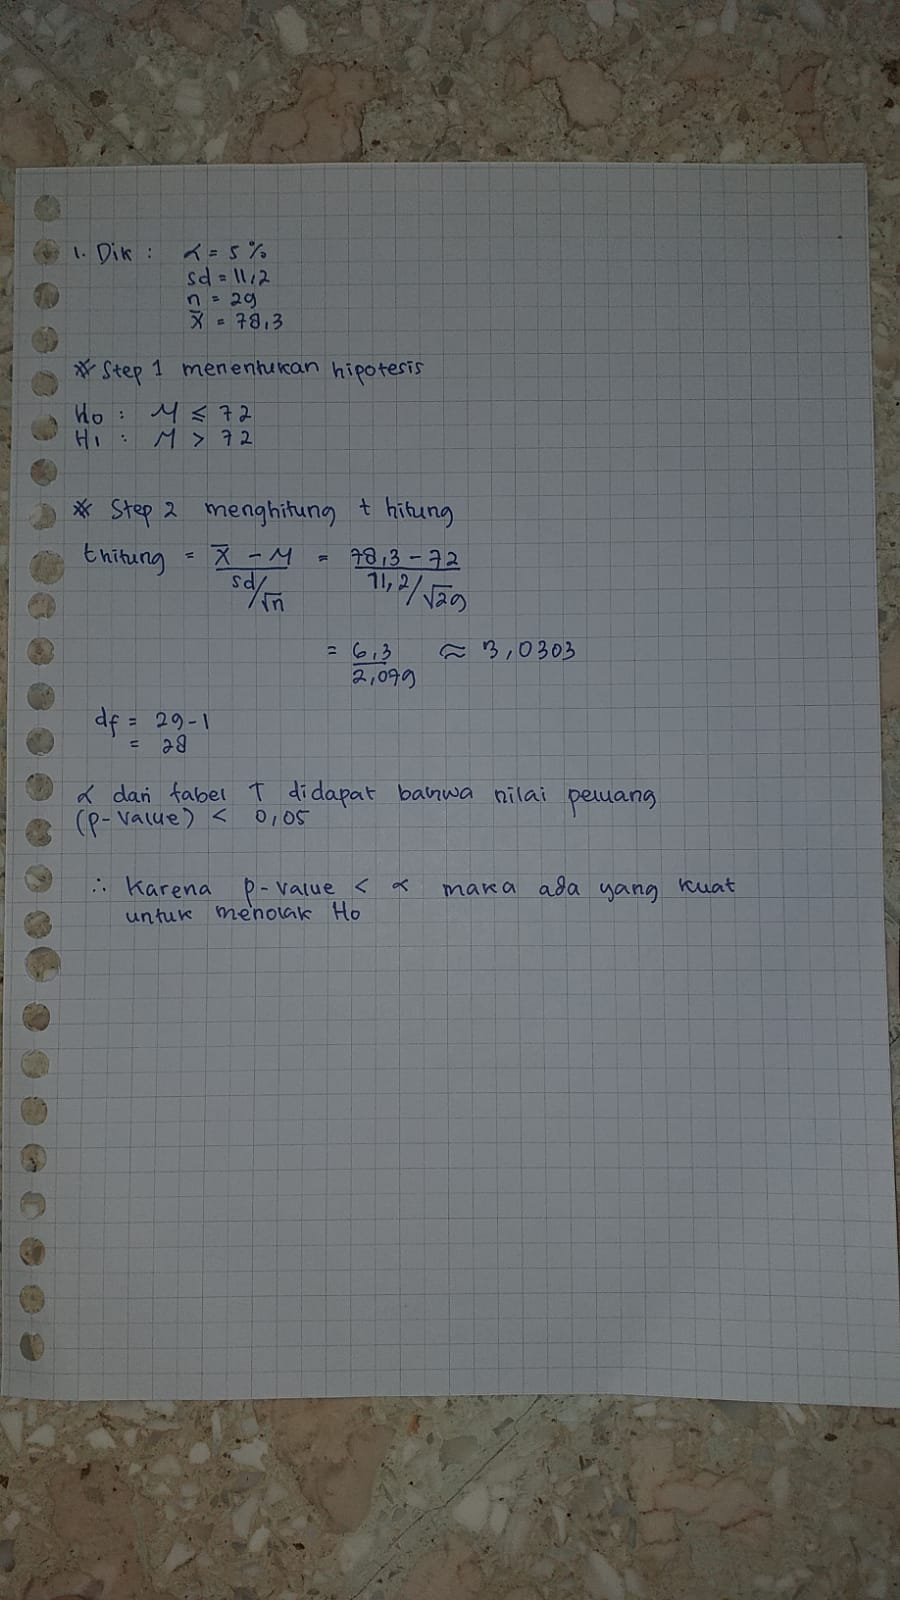 1. Dik : α = 5 %
sd = 11,2
n = 29
x̄ = 78,3
* Step 1 menentukan hipotesis
Ho : M ≤ 72
H1 : M > 72
* Step 2 menghitung t hitung
t hitung = x̄ - M / sd/√n = 78,3 - 72 / 11,2/√29
= 6,3 / 2,079 ≈ 3,0303
df = 29-1
= 28
α dari tabel T didapat bahwa nilai peluang
(p-value) < 0,05
∴ Karena p-value < α maka ada yang kuat
untuk menolak Ho